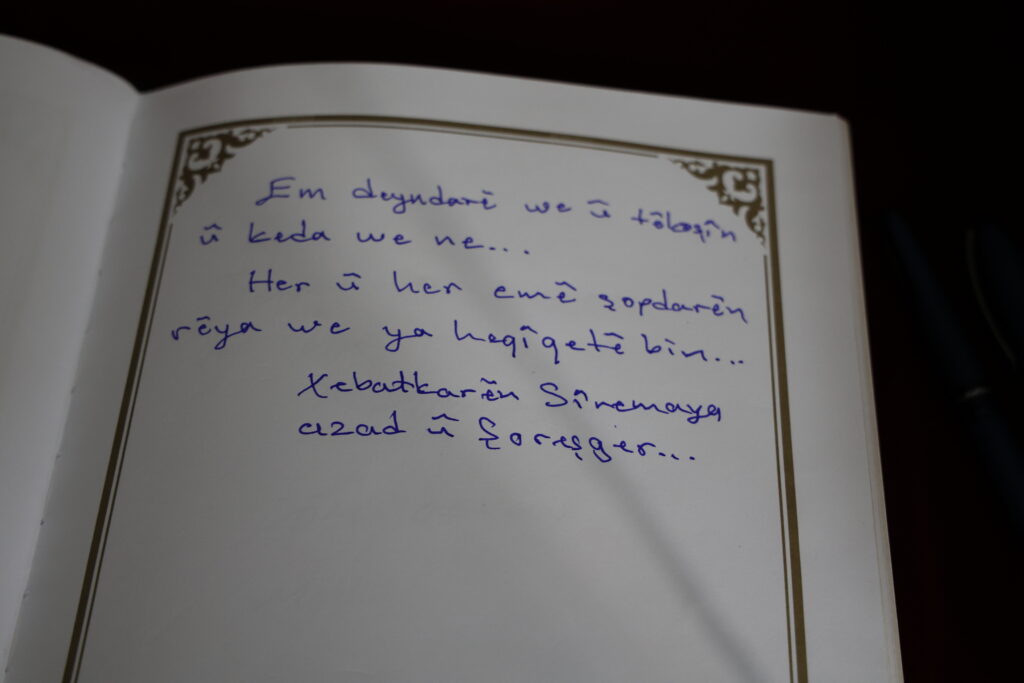 Em deyndarê we û têkoşîn
û keda we ne...
Her û her emê şopdarên
rêya we ya heqîqetê bin...
Xebatkarên Sînemaya
azad û Şoreşger...